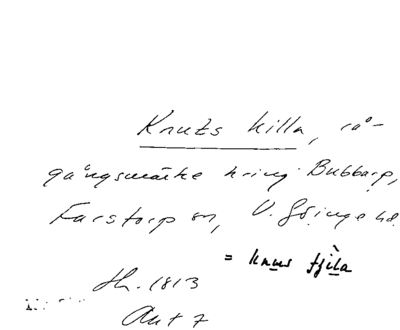 Knuts killa, rå-
gångsmärke kring Bubbarp,
Farstorp sn, V. Göinge hd.
= knus tjila
Hh. 1813
Akt 7